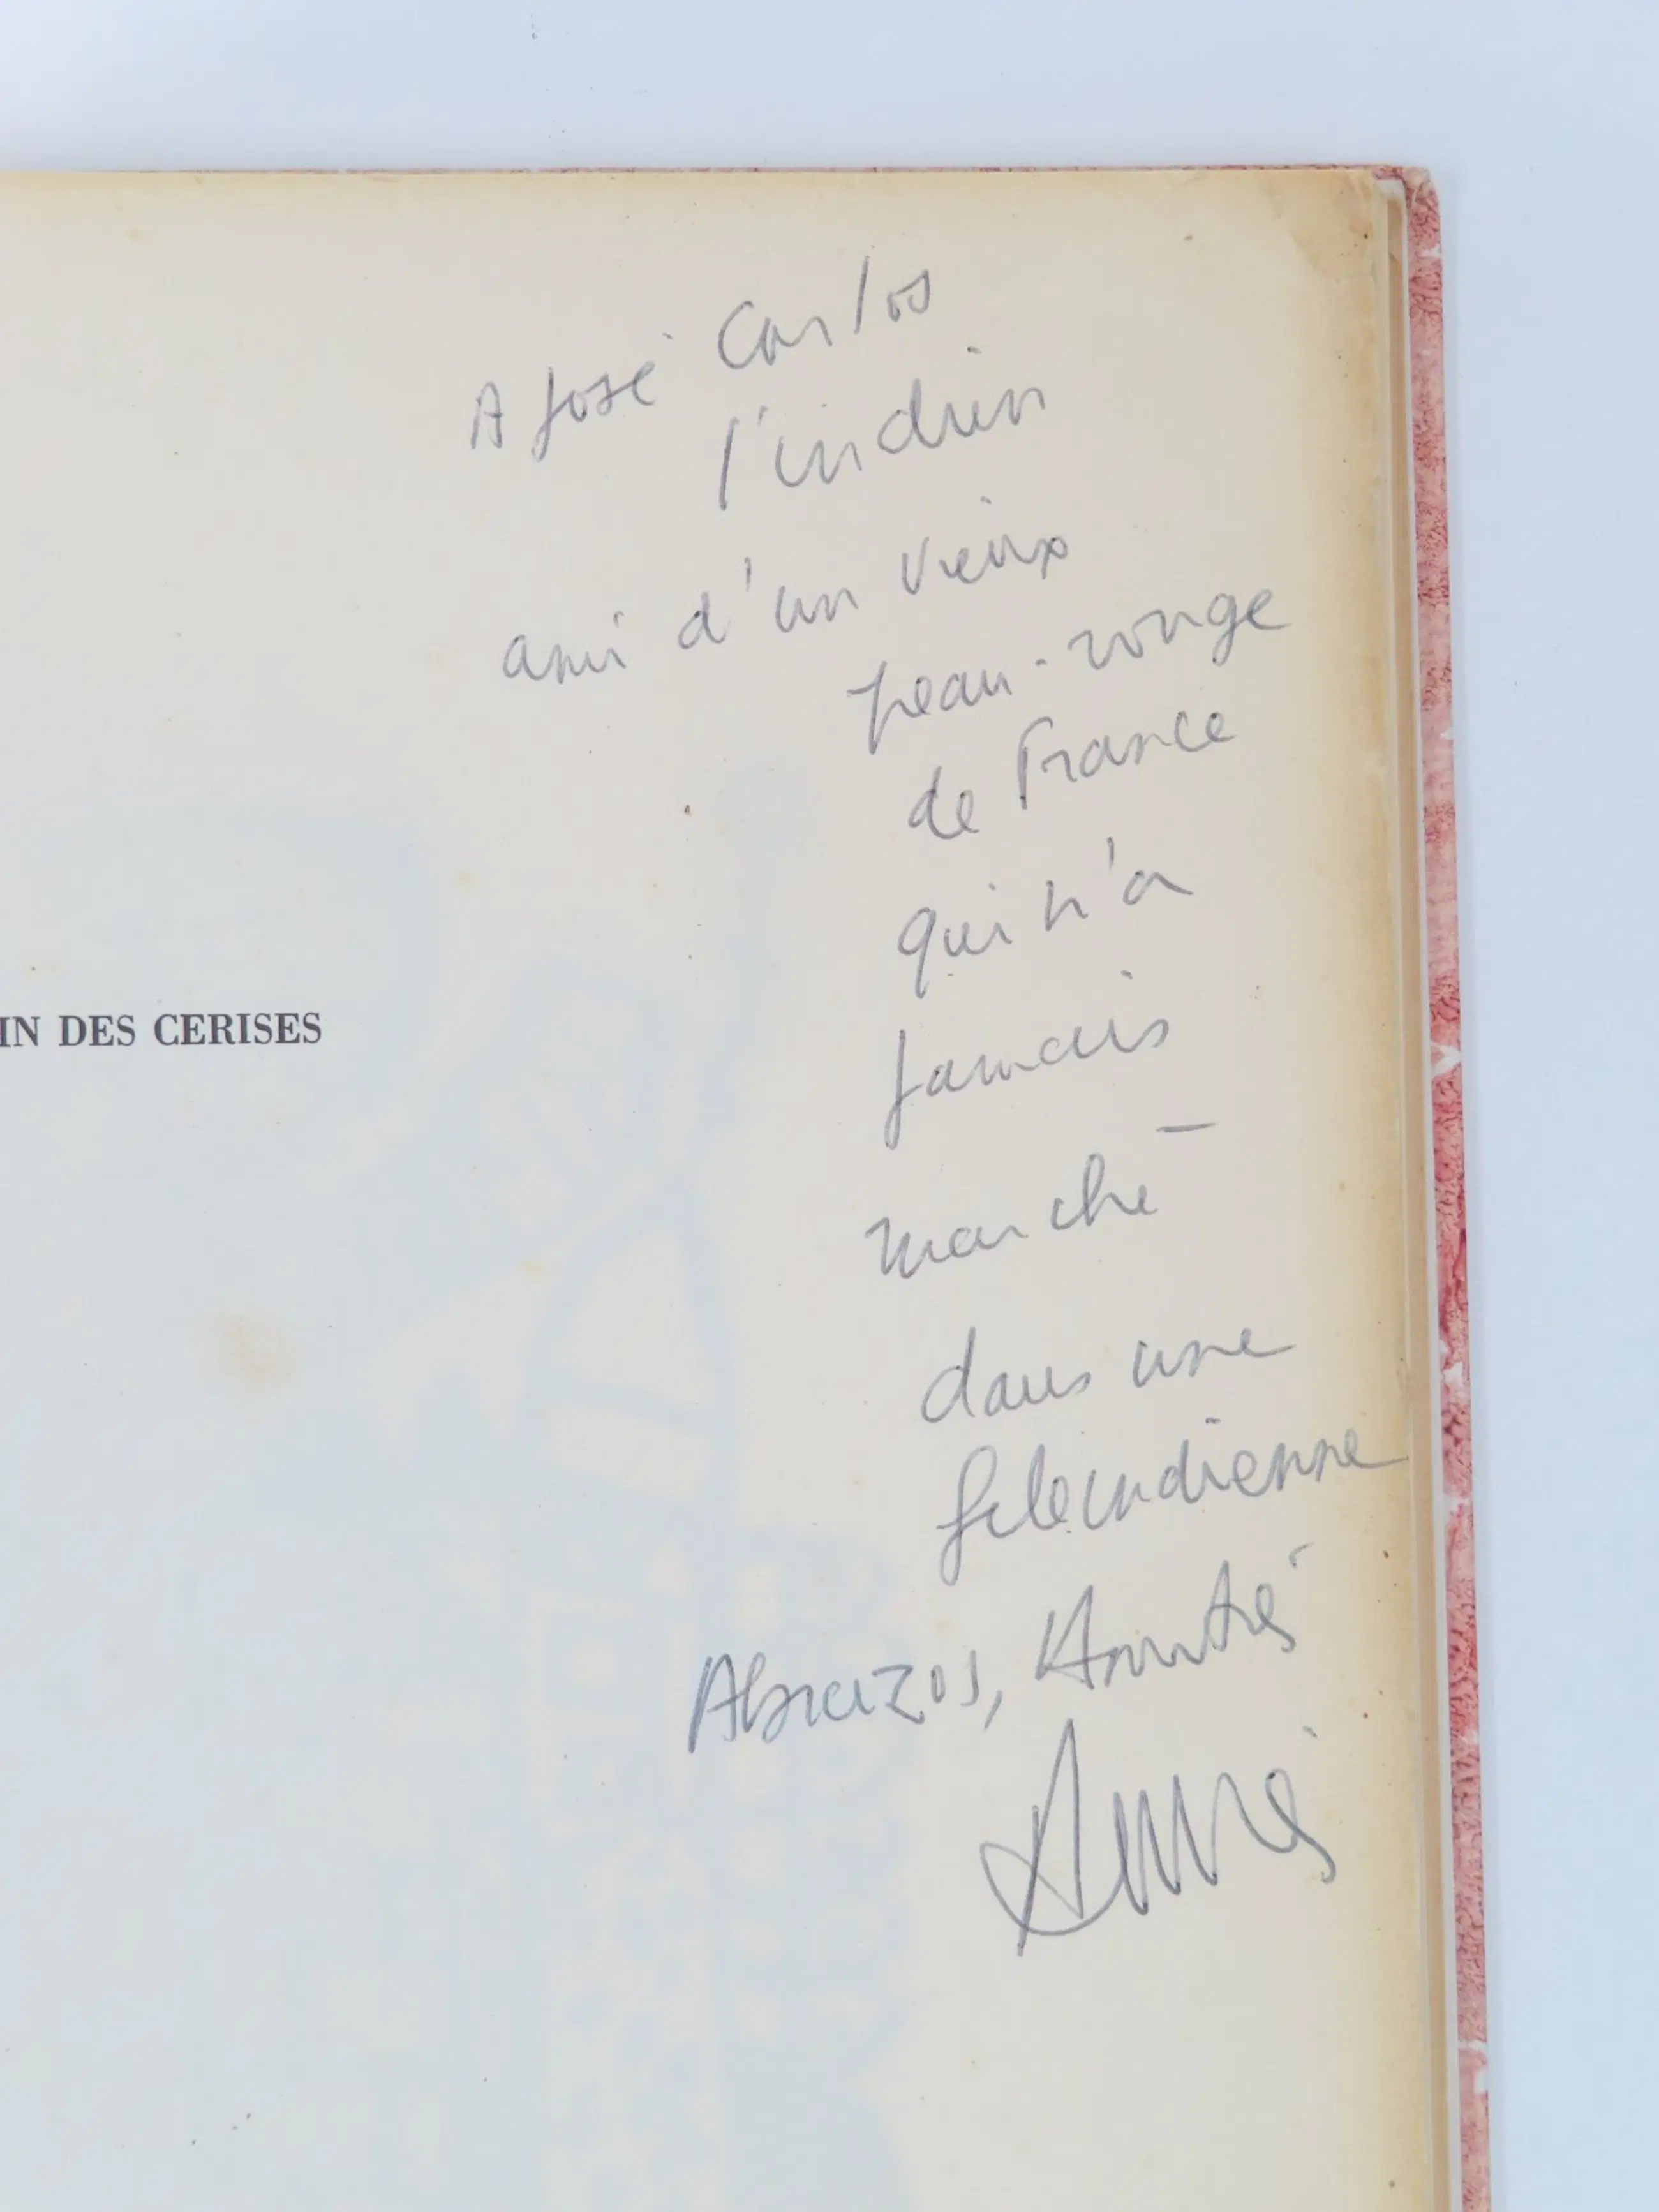 A José Carlos
l'indien
ami d'un vieux
peau-rouge
de France
qui n'a
jamais
marché
dans une
file indienne
Abrazos, Amitiés
IN DES CERISES